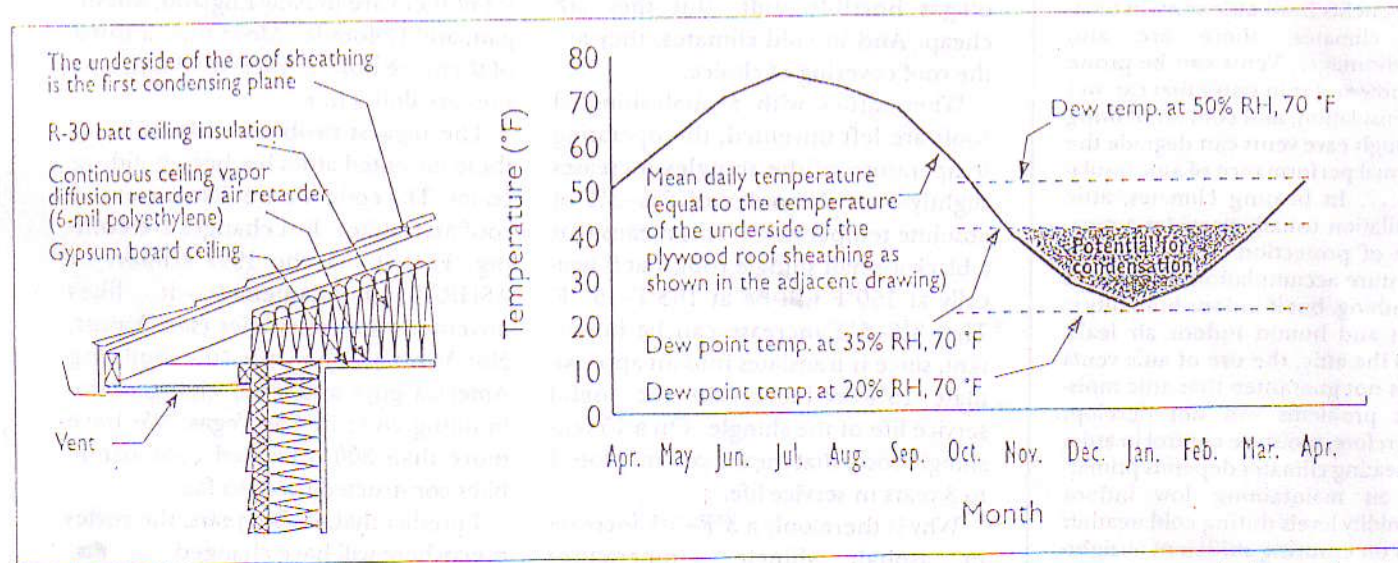 The underside of the roof sheathing
is the first condensing plane
R-30 batt ceiling insulation
Continuous ceiling vapor
diffusion retarder / air retarder
(6-mil polyethylene)
Gypsum board ceiling
Vent
Temperature (°F)
80
70
60
50
40
30
20
10
0
Mean daily temperature
(equal to the temperature
of the underside of the
plywood roof sheathing as
shown in the adjacent drawing)
Dew point temp. at 35% RH, 70 °F
Dew point temp. at 20% RH, 70 °F
Dew temp. at 50% RH, 70 °F
Potential for
condensation
Apr. May Jun. Jul. Aug. Sep. Oct. Nov. Dec. Jan. Feb. Mar. Apr.
Month